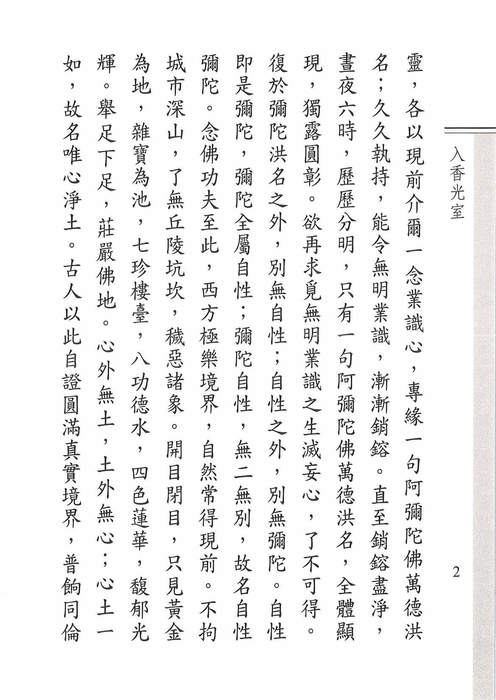 入香光室
2
靈，各以現前介爾一念業識心，專緣一句阿彌陀佛萬德洪
名；久久執持，能令無明業識，漸漸銷鎔。直至銷鎔盡淨，
晝夜六時，歷歷分明，只有一句阿彌陀佛萬德洪名，全體顯
現，獨露圓彰。欲再求覓無明業識之生滅妄心，了不可得。
復於彌陀洪名之外，別無自性；自性之外，別無彌陀。自性
即是彌陀，彌陀全屬自性；彌陀自性，無二無別，故名自性
彌陀。念佛功夫至此，西方極樂境界，自然常得現前。不拘
城市深山，了無丘陵坑坎，穢惡諸象。開目閉目，只見黃金
為地，雜寶為池，七珍樓臺，八功德水，四色蓮華，馥郁光
輝。舉足下足，莊嚴佛地。心外無土，土外無心；心土一
如，故名唯心淨土。古人以此自證圓滿真實境界，普餉同倫